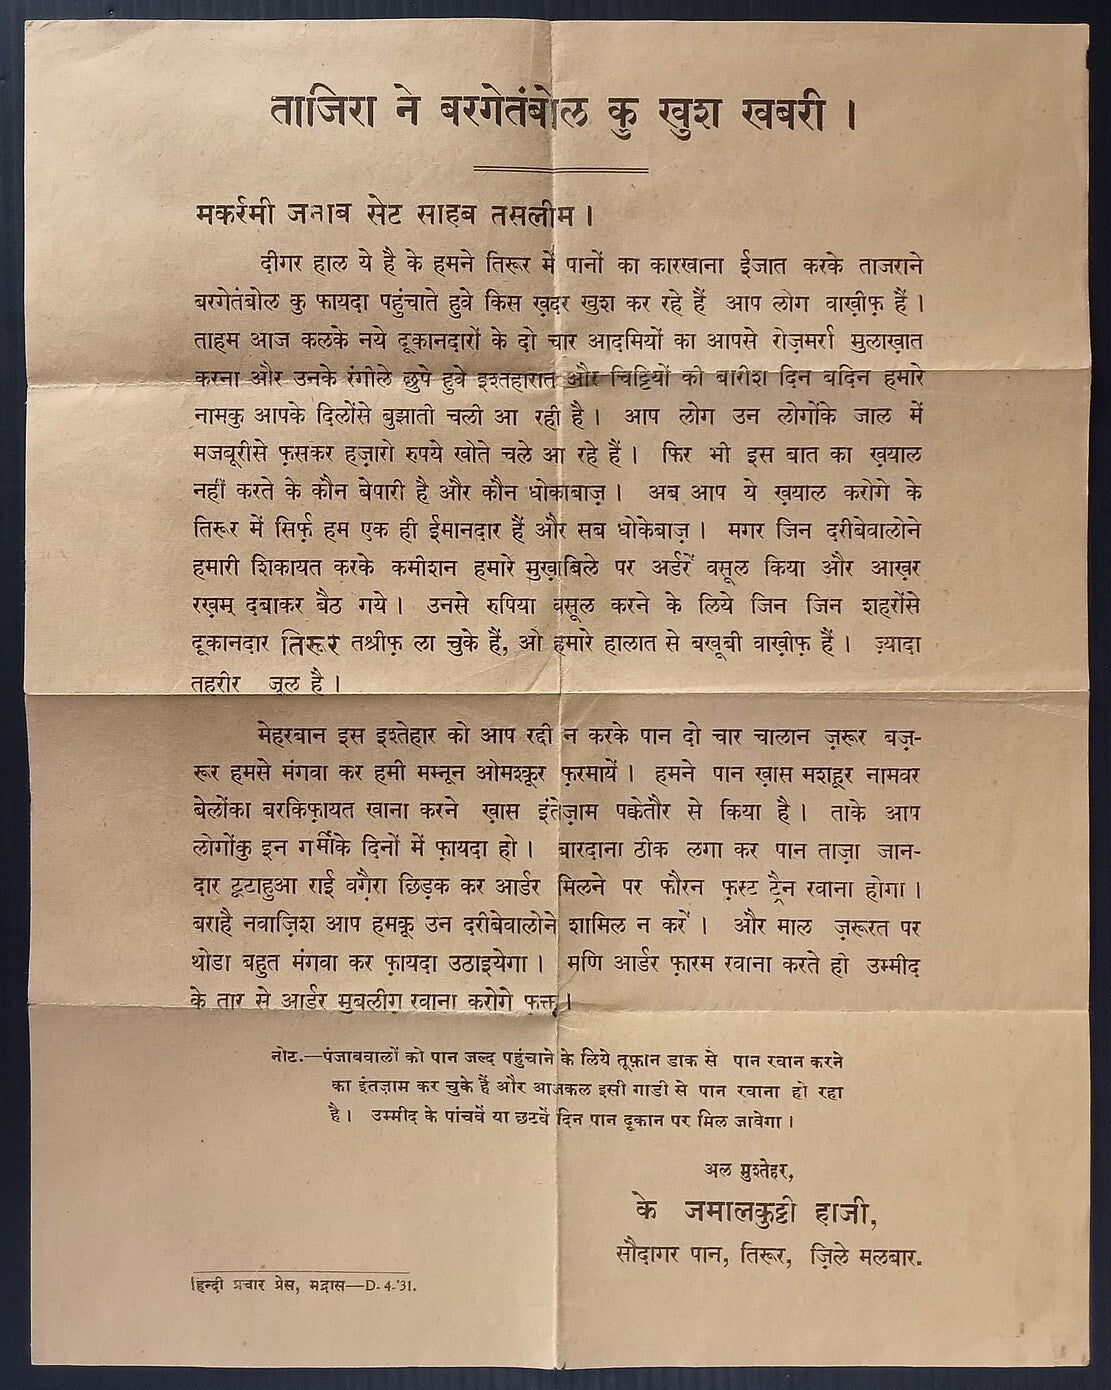 ताजिरा ने बरगेतंबोल कु खुश खबरी ।
मकर्रमी जनाब सेट साहब तसलीम ।
दीगर हाल ये है के हमने तिरूर में पानों का कारखाना ईजात करके ताजराने
बरगेतंबोल कु फायदा पहुंचाते हुवे किस ख़दर खुश कर रहे हैं आप लोग वाख़ीफ़ हैं ।
ताहम आज कलके नये दूकानदारों के दो चार आदमियों का आपसे रोज़मर्रा मुलाख़ात
करना और उनके रंगीले छुपे हुवे इश्तहारात और चिट्टियों की बारीश दिन बदिन हमारे
नामकु आपके दिलोंसे बुझाती चली आ रही है । आप लोग उन लोगोंके जाल में
मजबूरीसे फ़सकर हज़ारो रुपये खोते चले आ रहे हैं । फिर भी इस बात का ख़याल
नहीं करते के कौन बेपारी है और कौन धोकाबाज़ । अब आप ये ख़याल करोगे के
तिरूर में सिर्फ़ हम एक ही ईमानदार हैं और सब धोकेबाज़ । मगर जिन दरीबेवालोने
हमारी शिकायत करके कमीशन हमारे मुख़ाबिले पर अर्डरें वसूल किया और आखर
रख़म् दबाकर बैठ गये । उनसे रुपिया वसूल करने के लिये जिन जिन शहरोंसे
दूकानदार तिरूर तश्रीफ़ ला चुके हैं, ओ हमारे हालात से बखूबी वाख़ीफ़ हैं । ज़्यादा
तहरीर जूल है ।
मेहरबान इस इश्तेहार को आप रद्दी न करके पान दो चार चालान ज़रूर बज़-
रूर हमसे मंगवा कर हमी मम्नून ओमश्कूर फ़रमायें । हमने पान ख़ास मशहूर नामवर
बेलोंका बरकिफ़ायत खाना करने ख़ास इंतेज़ाम पक्केतौर से किया है । ताके आप
लोगोंकु इन गर्मीके दिनों में फ़ायदा हो । बारदाना ठीक लगा कर पान ताज़ा जान-
दार टूटाहुआ राई वग़ैरा छिड़क कर आर्डर मिलने पर फौरन फ़स्ट ट्रैन रवाना होगा ।
बराहै नवाज़िश आप हमकू उन दरीबेवालोने शामिल न करें । और माल ज़रूरत पर
थोडा बहुत मंगवा कर फ़ायदा उठाइयेगा । मणि आर्डर फ़ारम रवाना करते हो उम्मीद
के तार से आर्डर मुबलीग़ रवाना करोगे फ़क्त ।
नोट.—पंजाबवालों को पान जल्द पहुंचाने के लिये तूफ़ान डाक से पान रवान करने
का इंतज़ाम कर चुके हैं और आजकल इसी गाडी से पान रवाना हो रहा
है । उम्मीद के पांचवें या छटवें दिन पान दूकान पर मिल जावेगा ।
अल मुश्तेहर,
के जमालकुट्टी हाजी,
सौदागर पान, तिरूर, ज़िले मलबार.
हिन्दी प्रचार प्रेस, मद्रास—D-4-'31.